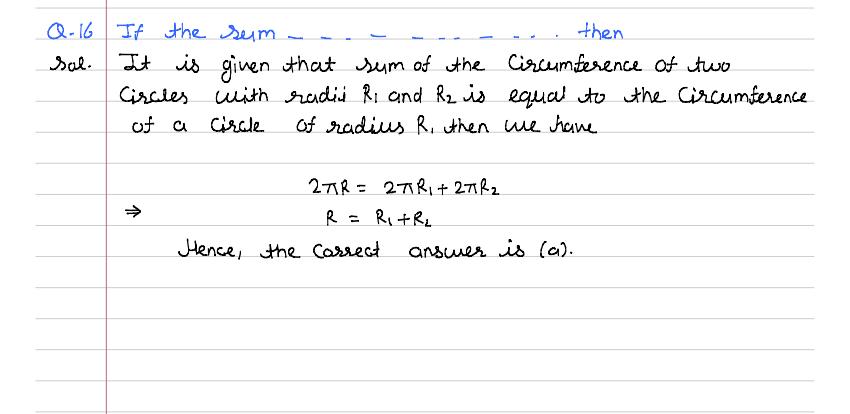 Q-16 If the sum - - - - - - - - - . then
Sol. It is given that sum of the Circumference of two
Circles with radii R₁ and R₂ is equal to the Circumference
of a Circle of radius R, then we have
2πR = 2πR₁ + 2πR₂
⇒ R = R₁ + R₂
Hence, the Correct answer is (a).